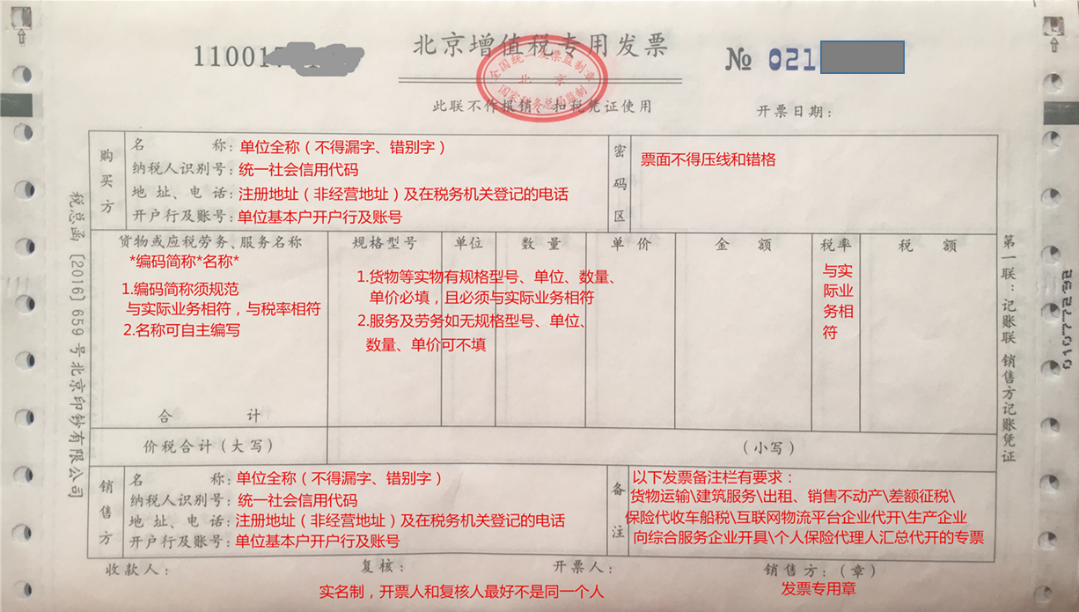 11001
北京增值税专用发票
№ 021
全国统一发票监制章
北 京
国家税务总局监制
此联不作报销、扣税凭证使用
开票日期:
购买方
名 称: 单位全称(不得漏字、错别字)
纳税人识别号: 统一社会信用代码
地 址、电 话: 注册地址(非经营地址)及在税务机关登记的电话
开户行及账号: 单位基本户开户行及账号
密码区
票面不得压线和错格
货物或应税劳务、服务名称 规格型号 单位 数 量 单 价 金 额 税率 税 额
*编码简称*名称*
1.编码简称须规范
与实际业务相符,与税率相符
2.名称可自主编写
1.货物等实物有规格型号、单位、数量、
单价必填,且必须与实际业务相符
2.服务及劳务如无规格型号、单位、
数量、单价可不填
与实
际业
务相
符
合 计
价税合计(大写) (小写)
销售方
名 称: 单位全称(不得漏字、错别字)
纳税人识别号: 统一社会信用代码
地 址、电 话: 注册地址(非经营地址)及在税务机关登记的电话
开户行及账号: 单位基本户开户行及账号
备注
以下发票备注栏有要求:
货物运输\建筑服务\出租、销售不动产\差额征税\
保险代收车船税\互联网物流平台企业代开\生产企业
向综合服务企业开具\个人保险代理人汇总代开的专票
收款人: 复核: 开票人: 销售方:(章)
实名制,开票人和复核人最好不是同一个人
发票专用章
税总函[2016]659号北京印钞有限公司
第一联:记账联 销售方记账凭证
01077292